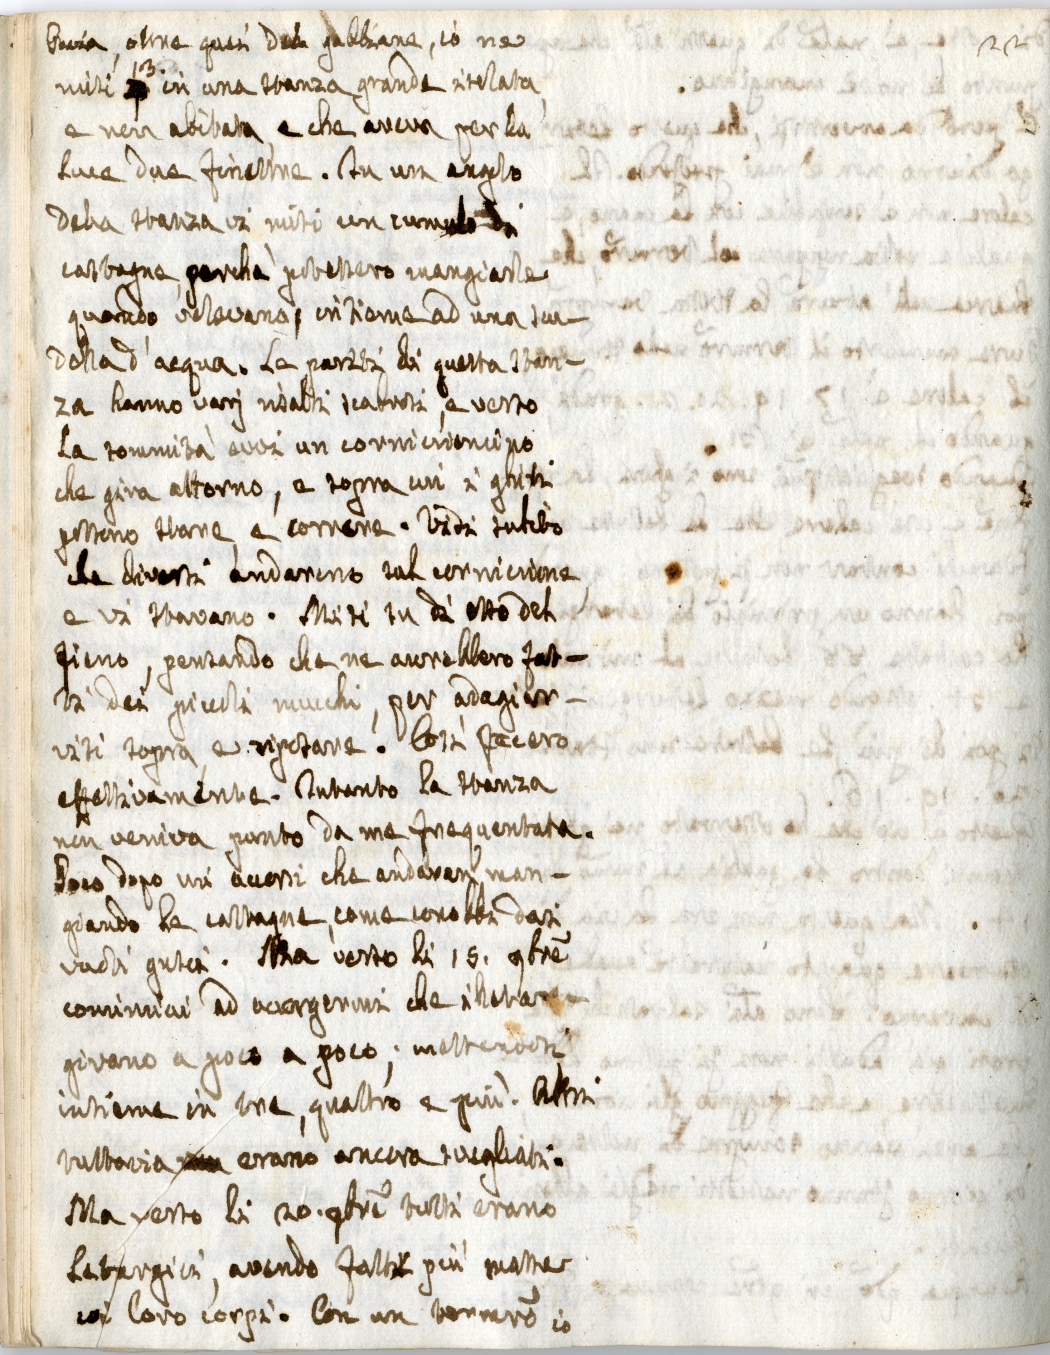 22
oltre questi della gabbiane, io ne
misi 13. in una stanza grande isolata
e non abitata, e che aveva per la
luce due finestre. In un angolo
della stanza vi misi un cumulo di
castagne, perché potessero mangiarle
quando volevano, insieme ad una scu-
della d'acqua. Le pareti di questa stan-
za hanno varj risalti scabrosi, e verso
la sommità evvi un cornicioncino
che gira attorno, e sopra cui i ghiri
possono stare, e correre. Vidi subito
che diversi andarono sul cornicione,
e vi stavano. Misi su di esso del
fieno, pensando che ne avrebbero fat-
ti dei piccoli mucchi, per adagiar-
visi sopra, e riposare. Così fecero
effettivamente. Intanto la stanza
non veniva punto da me frequentata.
Poco dopo mi accorsi che andavan man-
giando le castagne, come conobbi dai
vuoti gusci. Ma verso li 15. 9bre
cominciai ad accorgermi che
givano a poco a poco, mettendosi
insieme in tre, quattro e più. Altri
tuttavia erano ancora svegliati.
Ma verso li 20. 9bre tutti erano
letargici, avendo fatti più masse
coi loro corpi. Con un termro io